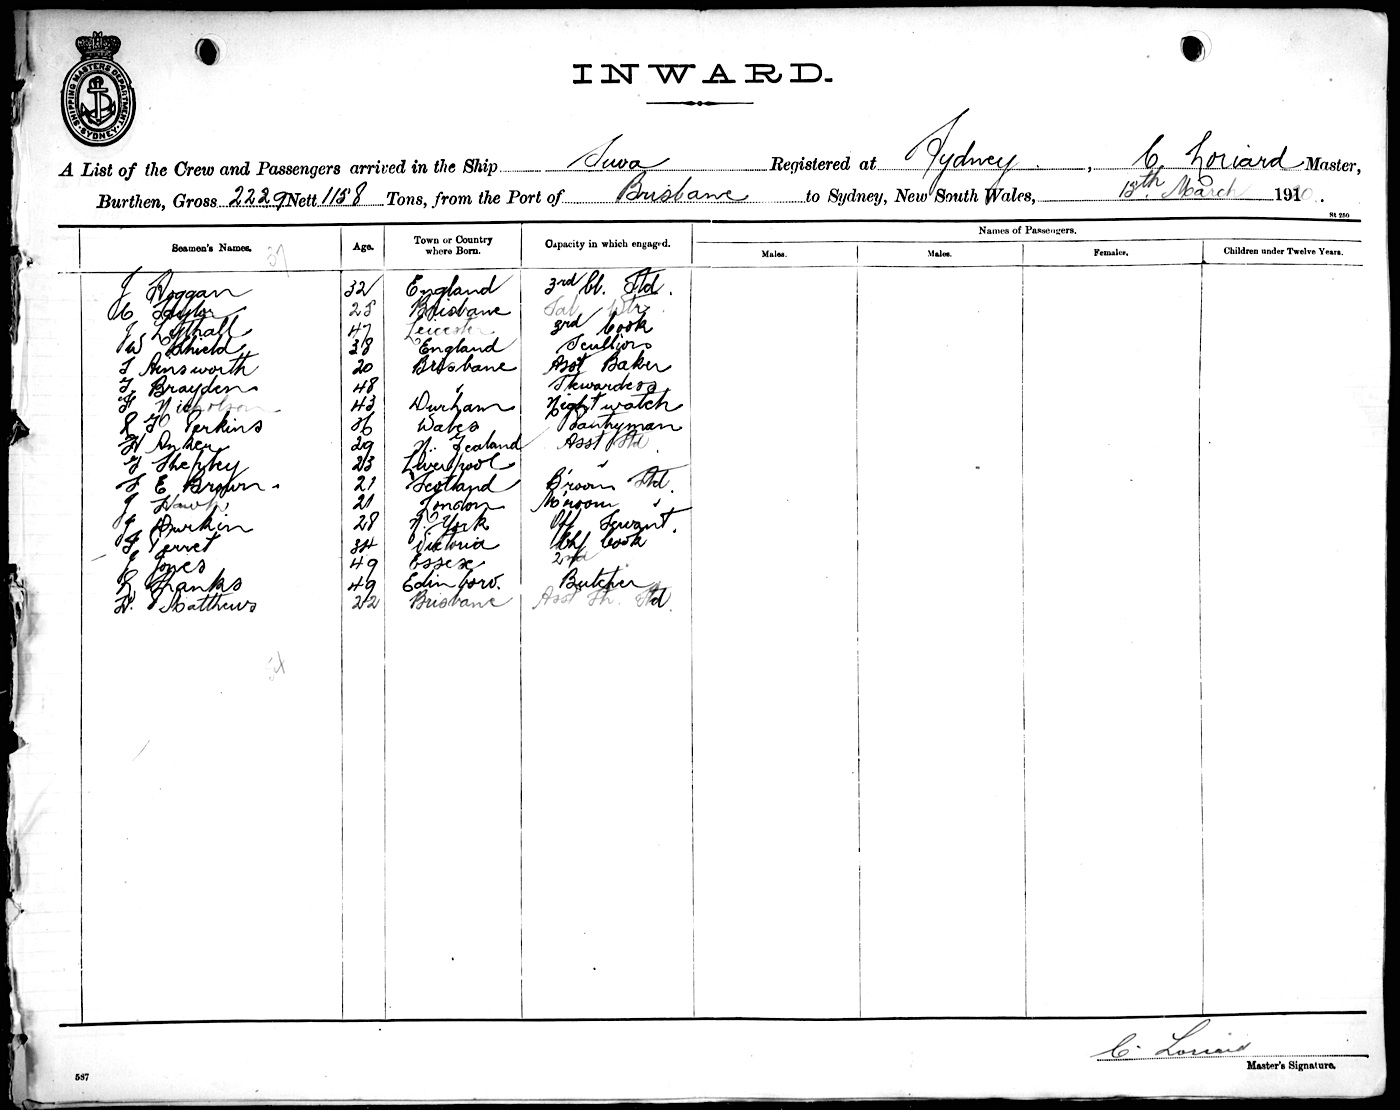 SHIPPING MASTERS DEPARTMENT · SYDNEY ·
INWARD.
A List of the Crew and Passengers arrived in the Ship Suva Registered at Sydney, C. Loriard Master,
Burthen, Gross 2229 Nett 1158 Tons, from the Port of Brisbane to Sydney, New South Wales, 13th March 1910.
St 250
Seamen's Names. Age. Town or Country where Born. Capacity in which engaged. Names of Passengers.
Males. Males. Females. Children under Twelve Years.
37
J Hoggan 32 England 3rd Cl. Std.
C Taylor 25 Brisbane Sal Wtr
J Lythall 47 Leicester 3rd Cook
W Shield 38 England Scullion
T Ainsworth 20 Brisbane Asst Baker
F. Brayden 48 " Stewardess
H Nicholson 43 Durham Night watch
R H Perkins 36 Wales Pantryman
H Anker 29 N. Zealand Asst Std
F Shepley 23 Liverpool "
F E Brown 21 Scotland B'room Std.
J 21 London M'room "
J Durkin 28 N York Off Servant.
F Perret 34 Victoria Chf Cook
J Jones 49 Essex 2nd "
R Shanks 49 Edinboro. Butcher
D. Matthews 22 Brisbane Asst Std.
54
C. Loriard
Master's Signature.
587